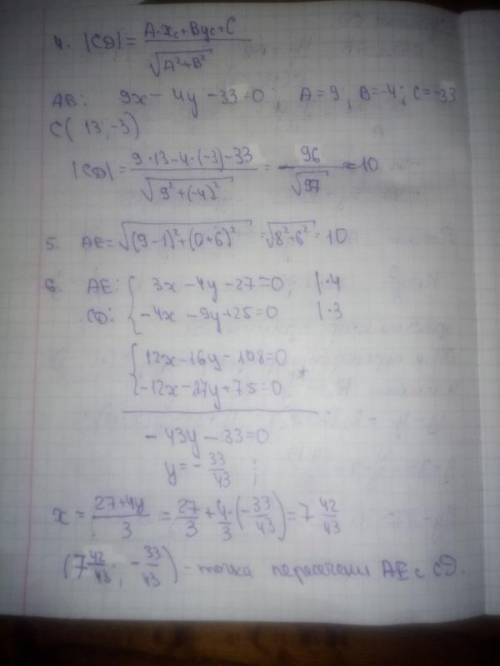 4. |CD| = (A·x_c + By_c + C) / √(A²+B²)
AB: 9x − 4y − 33 = 0 ; A = 9, B = −4; C = −33
C( 13; −3)
|CD| = (9·13 − 4·(−3) − 33) / √(9² + (−4)²) = 96 / √97 ≈ 10
5. AE = √((9−1)² + (0+6)²) = √(8²+6²) = 10
6. AE: { 3x − 4y − 27 = 0 | · 4
CD: { −4x − 9y + 25 = 0 | · 3
{ 12x − 16y − 108 = 0
{ −12x − 27y + 75 = 0 +
− 43y − 33 = 0
y = − 33/43 ;
x = (27+4y)/3 = 27/3 + 4/3 · (−33/43) = 7 42/43
(7 42/43 ; − 33/43) - точка пересечения AE с CD.